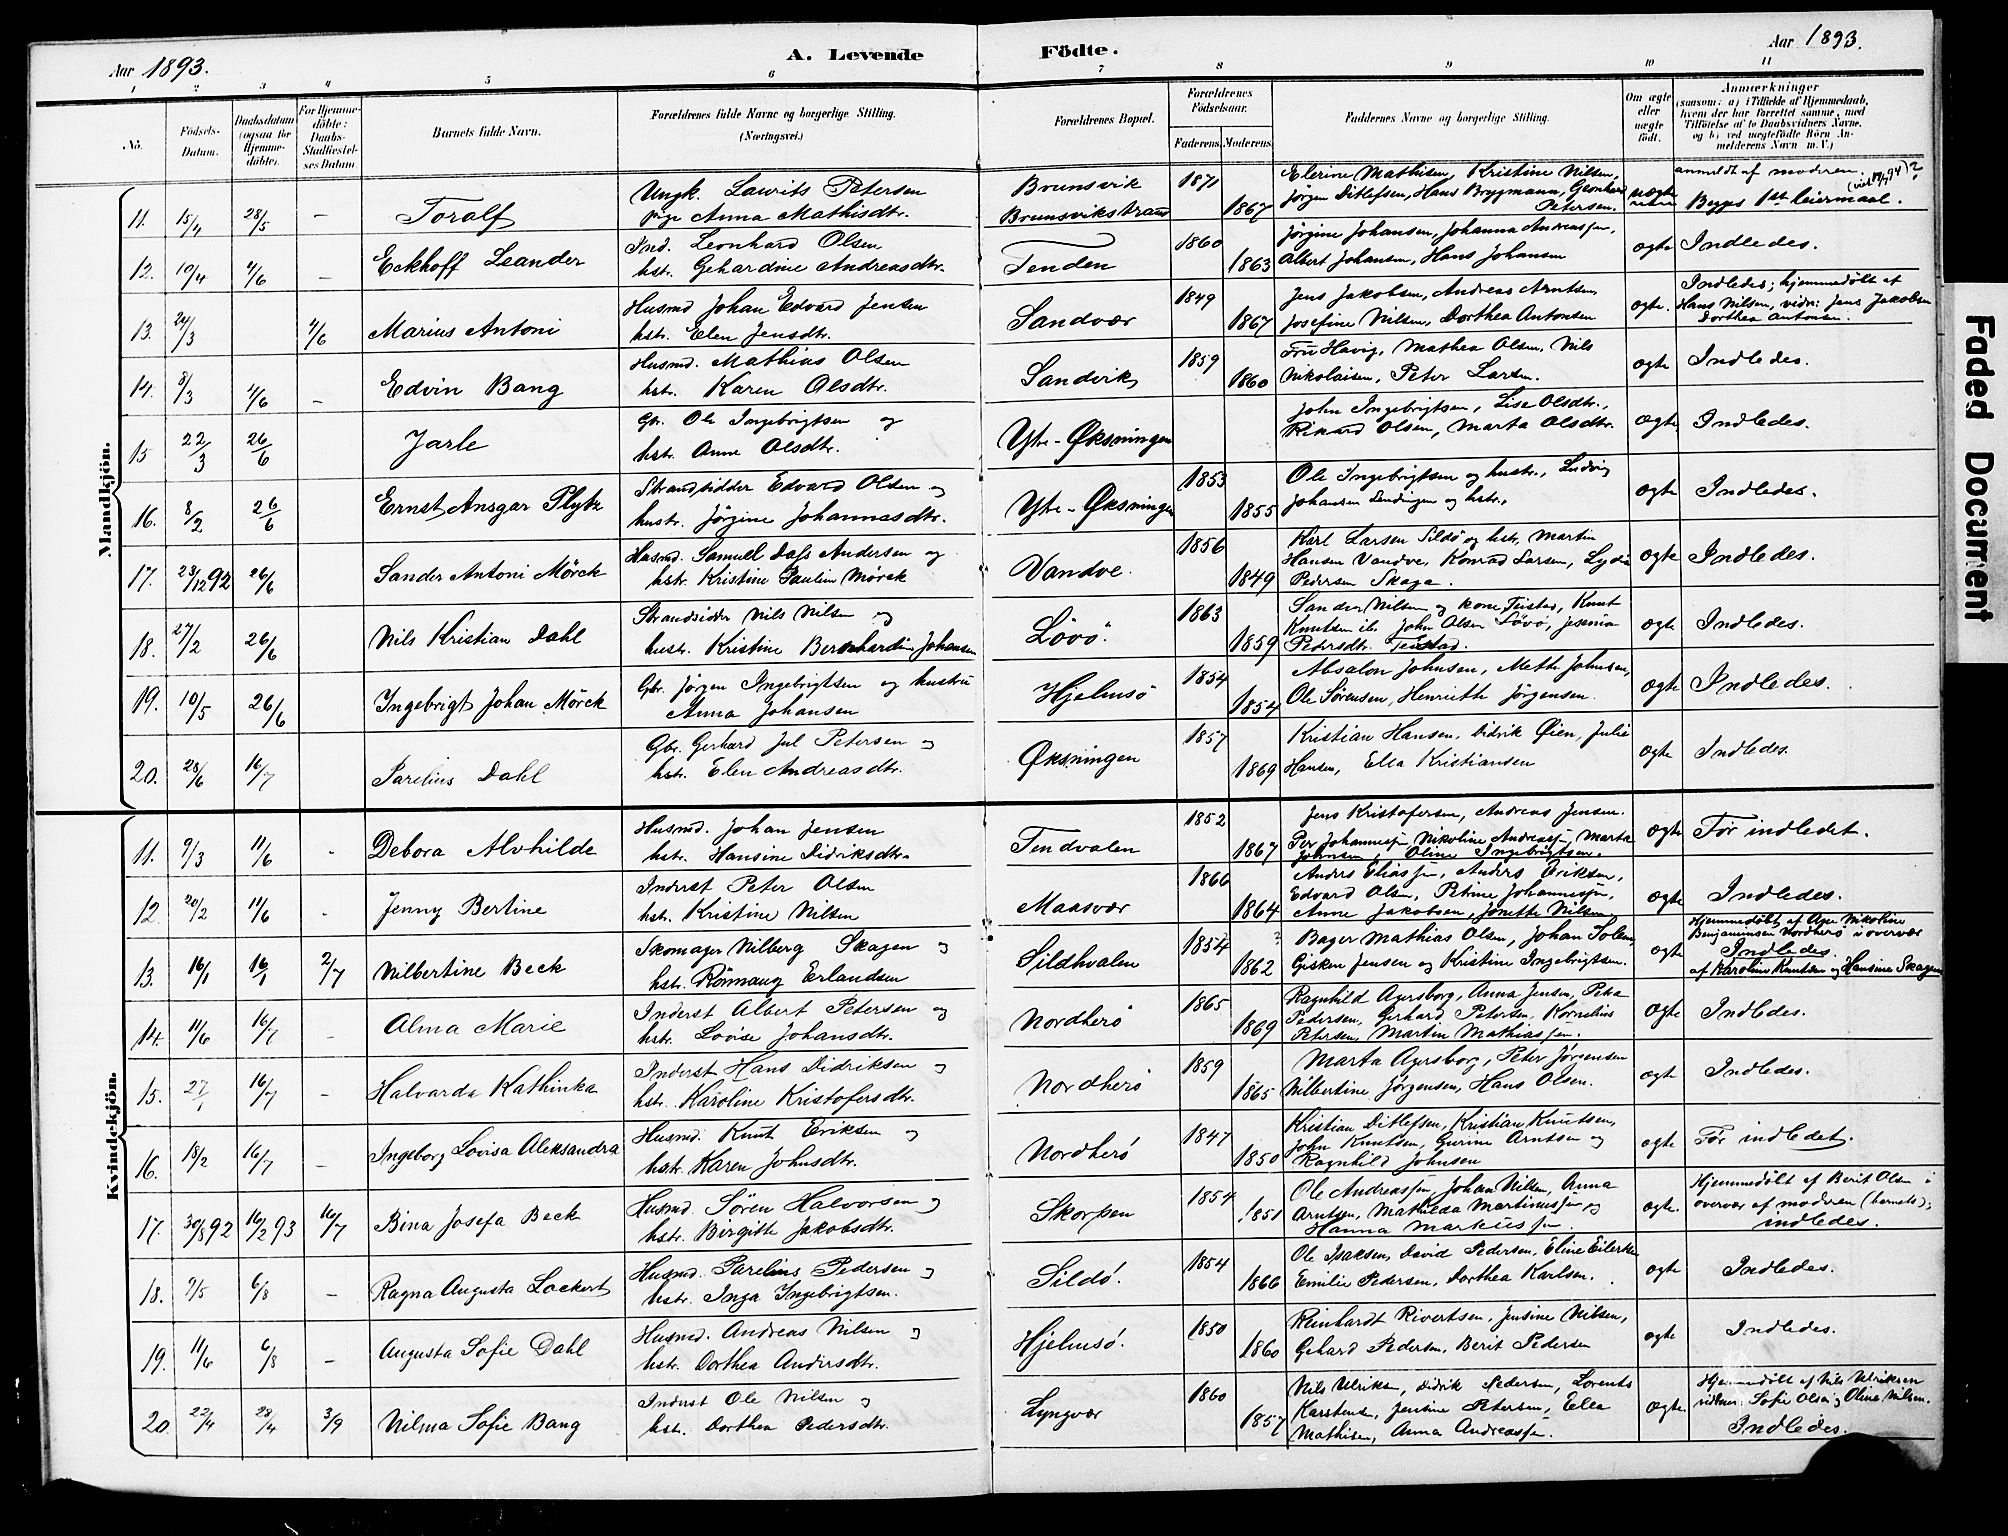 Aar 1893.
A. Levende Födte.
Aar 1893.
1 2 3 4 5 6 7 8 9 10 11
No.
Födsels-Datum.
Daabsdatum (ogsaa for Hjemme-döbte).
For Hjemme-döbte: Daabs-Stadfæstel-ses Datum
Barnets fulde Navn.
Forældrenes fulde Navne og borgerlige Stilling. (Næringsvei.)
Forældrenes Bopæl.
Forældrenes Födselsaar.
Faderens. Moderens.
Faddernes Navne og borgerlige Stilling.
Om ægte eller uægte födt.
Anmærkninger
(saasom: a) i Tilfælde af Hjemmedaab, hvem der har forrettet samme, med Tilföielse af to Daabsvidners Navne, og b) ved uægtefödte Börn An-melderens Navn m. V.)
Mandkjön.
11. 15/4 28/5 - Toralf
Ungk. Laurits Petersen
pige Anna Mathisdtr.
Brunsvik
Brunsvikstrand
1871 1867
Elerine Mathisen, Kristine Nilsen,
Jørgen Ditlefsen, Hans Brygmann, Petersen.
uægte
anmeldt af moderen.
Begges 1st leiermaal.
12. 10/4 4/6 - Eckhoff Leander
Ind. Leonhard Olsen
hstr. Gehardine Andreasdtr.
Tenden 1860 1863
Jørgine Johansen, Johanna Andreassen,
Albert Johansen, Hans Johansen
ægte Indledes.
13. 24/3 4/6 Marius Antoni
Husmd Johan Edvard Jensen
hstr. Elen Jensdtr.
Sandvær 1849 1867
Jens Jakobsen, Andreas Arntsen
Josefine Nilsen, Dorthea Antonsen
ægte. Indledes; hjemmedøbt af
Hans Nilsen, vidn: Jens Jakobsen
Dorthea Antonsen.
14. 8/3 4/6 - Edvin Bang
Husmd. Mathias Olsen
hstr. Karen Olsdtr.
Sandvik 1859 1860
Fru Havig, Mathea Olsen, Nils
Nikolaisen, Peter Larsen.
ægte Indledes.
15 22/3 26/6 Jarle
Gbr. Ole Ingebrigtsen og
hstr. Anne Olsdtr.
Ytre-Øksningen
John Ingebrigtsen, Lise Olsdtr.,
Rikard Olsen, Marta Olsdtr.
ægte Indledes.
16. 8/2 26/6 Ernst Ansgar Plytz
Strandsidder Edvard Olsen og
hustr. Jörgine Johannasdtr.
Ytre-Øksningen 1853 1855
Ole Ingebrigtsen og hustr., Ludvig
Johansen og hstr.,
ægte Indledes.
17. 23/12 92 26/6 Sander Antoni Mörck
Husmd. Samuel Dass Andersen og
hstr. Kristine Paulin Mørck
Vandve. 1856 1849
Karl Larsen Sildö og hstr. Martin
Hansen Vandve, Konrad Larsen, Lydia
Pedersen Skaga.
ægte Indledes.
18. 27/2 26/6 Nils Kristian Dahl
Strandsidder Nils Nilsen og
hustr. Kristine Bernhardine Johansen
Lövö. 1863 1859
Sander Nilsen og kone Teistad, Knut
Knutsen ib. John Olsen Løvø, Jesenia
Pedersdtr. Teistad.
ægte Indledes.
19. 10/5 26/6 Ingebrigt Johan Mörck
Gbr. Jörgen Ingebrigtsen og hustru
Anna Johansen
Hjelmsö 1854 1854
Absalon Johnsen, Mette Johnsen,
Ole Sörensen, Henriette Jörgensen.
ægte Indledes.
20. 28/6 16/7 Parelius Dahl
Gbr. Gerhard Jul Petersen og
hstr. Elen Andreasdtr.
Øksningen 1857 1869
Kristian Hansen, Didrik Øien, Julie
Hansen, Ella Kristiansen
ægte Indledes.
Kvindekjön.
11. 9/3 11/6 - Debora Alvhilde
Husmd. Johan Jensen
hstr. Hansine Didriksdtr.
Tendvalen 1852 1867
Jens Kristofersen, Andreas Jensen.
Per Johannessen, Nikoline Andreassen, Marta
Johnsen, Oline Ingebrigtsen.
ægte Før indledet.
12. 20/2 11/6 - Jenny Bertine
Inderst Peter Olsen
hstr. Kristine Nilsen
Maasvær 1866 1864
Anders Eliassen, Anders Eriksen,
Edvard Olsen, Petrine Johannessen
Anne Jakobsen, Jonette Nilsen
ægte Indledes.
13. 16/1 16/1 2/7 Nilbertine Beck
Skomager Nilberg Skagen og
hstr. Rönnaug Erlandsen
Sildhvalen 1854 ? 1862
Bager Mathias Olsen, Johan Solem,
Gisken Jensen og Kristine Ingebrigtsen.
ægte Hjemmedøbt af Nikoline
Benjaminsen Nordherö i overvær
Indledes.
af Karoline Knutsen og Hansine Skagen
14. 11/6 16/7 - Alma Marie
Inderst Albert Petersen og
hstr. Lovise Johansdtr.
Nordherö 1865 1869
Ragnhild Agersborg, Anna Jensen, Petra
Pedersen, Gerhard Petersen, Kornelius
Petersen, Martin Mathiassen.
ægte Indledes.
15. 27/1 16/7 - Halvarda Kathinka
Inderst Hans Didriksen og
hstr. Karoline Kristofersdtr.
Nordherö 1859 1865
Marta Agersborg, Peter Jörgensen
Nilbertine Jörgensen, Hans Olsen.
ægte Indledes.
16. 18/2 16/7 - Ingeborg Lovisa Aleksandra
Husmd. Knut Eriksen og
hstr. Karen Johnsdtr.
Nordherö 1847 1850
Kristian Ditlefsen, Kristian Knutsen,
John Knutsen, Gurine Arntsen og
Ragnhild Johnsen
ægte Før indledet.
17. 30/8 92 16/2 93 16/7 Bina Josefa Beck
Husmd. Sören Halvorsen og
hstr. Birgitte Jakobsdtr.
Skorpen 1854 1851
Ole Andreassen, Johan Nilsen, Anna
Arntsen, Mathilda Martinussen og
Hanna Markussen.
ægte. Hjemmedøbt af Berit Olsen i
overvær af moderen (barnets);
indledes.
18. 9/5 6/8 - Ragna Augusta Lockert
Husmd. Parelius Pedersen og
hstr. Inga Ingebrigtsen.
Sildö. 1854 1866
Ole Isaksen, David Pedersen, Eline Eilertsen
Emilie Pedersen, Dorthea Karlsen.
ægte Indledes.
19. 11/6 6/8 - Augusta Sofie Dahl
Husmd. Andreas Nilsen og
hstr. Dorthea Andersdtr.
Hjelmsö. 1850 1860
Reinhardt Rivertsen, Jensine Nilsen,
Gehard Pedersen, Berit Pedersen
ægte Indledes.
20. 22/4 28/4 3/9 Nilma Sofie Bang
Inderst Ole Nilsen og
hstr. Dorthea Pedersdtr.
Lyngvær 1860 1857
Nils Ulriksen, Didrik Pedersen, Lorents
Karstensen, Jensine Petersen, Ella
Mathisen, Anna Andreassen.
ægte. Hjemmedøbt af Nils Ulriksen
vidner: Sofie Olsen, Oline Nilsen.
Indledes.
Faded Document